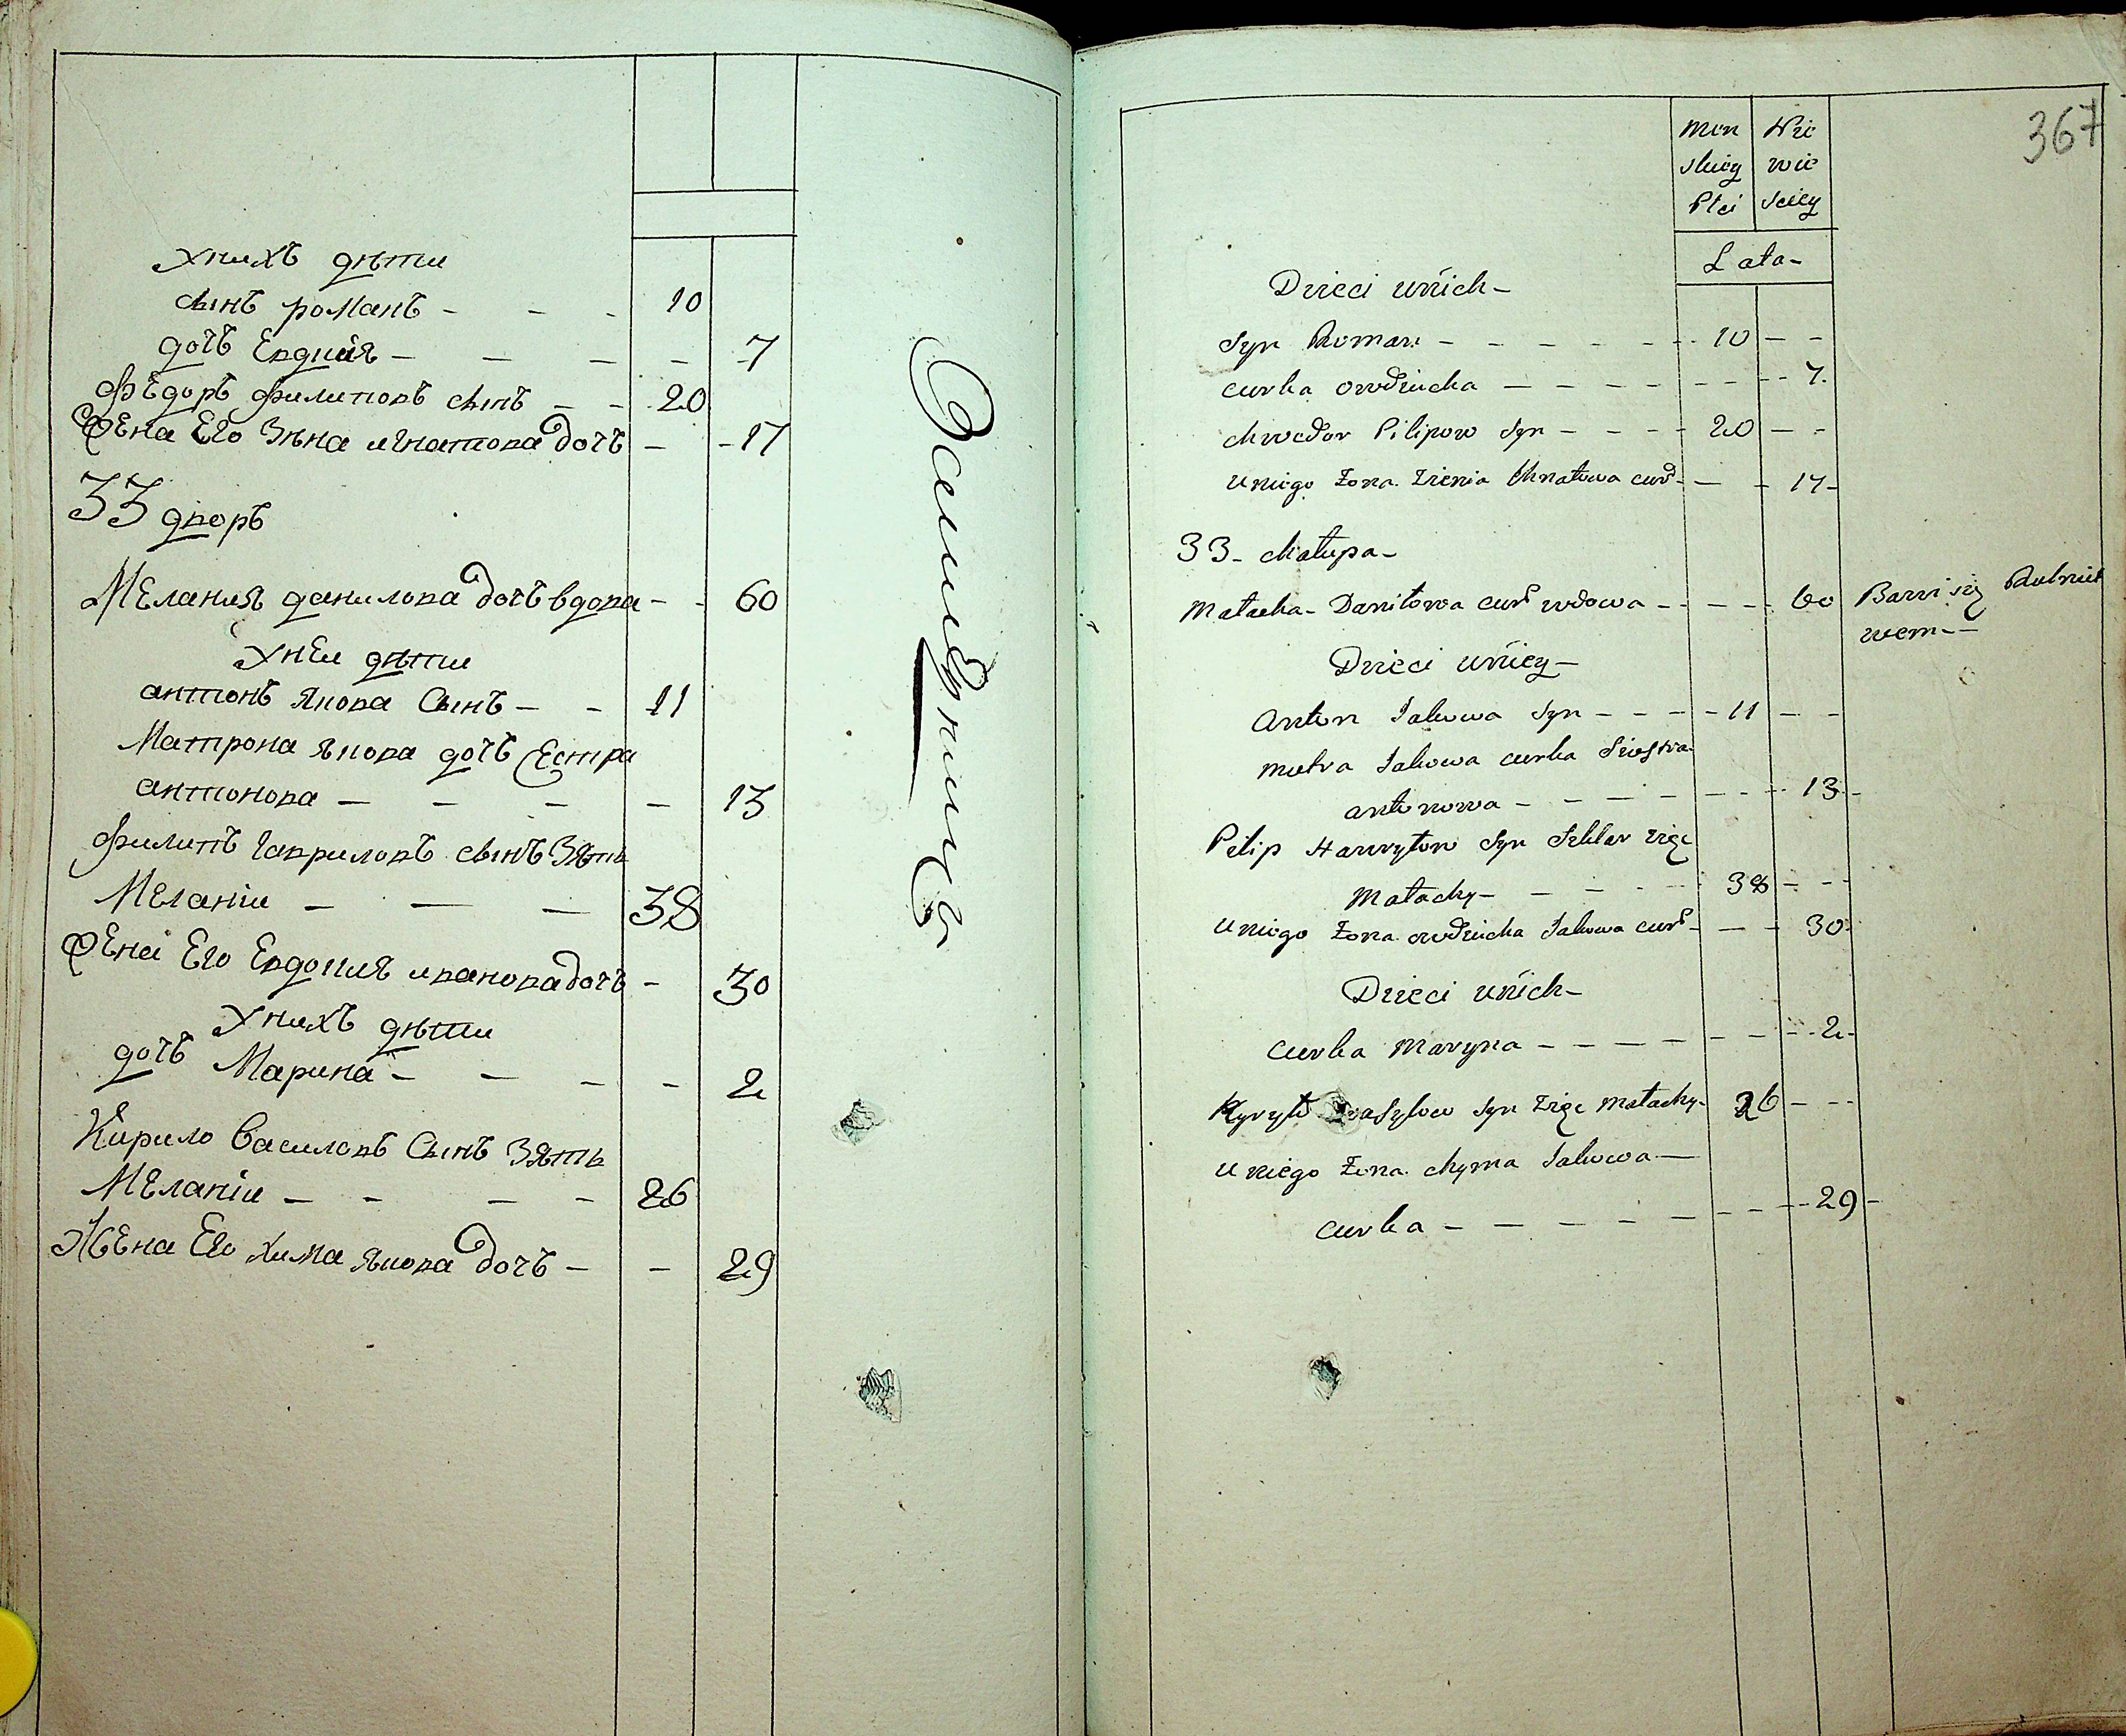 Унихъ дѣти
сынъ романъ - - - 10
дочъ Евдшія - - - - 7
Фѣдоръ филиповъ сынъ - - 20
Жена Его Зѣна игнатова дочъ - - 17
33 дворъ
Мелания данилова дочъ вдова - - 60
Унеи дѣти
антонъ якова Сынъ - - 11
Матрона якова дочъ Сестра
антонова - - - - 13
филипъ гавриловъ сынъ Зять
Меланіи - - - 38
Жена Его Евдокия иванова дочъ - 30
Унихъ дѣти
дочъ Марина - - - - 2
Кирило василовъ Сынъ Зять
Меланіи - - - - 26
Жена Его хима якова дочъ - - 29
367
Men Nie
skiey wie
Płci sciey
Lata -
Dzieci unich -
Syn Roman - - - - - 10 - -
curka owdziucha - - - - - - 7.
chwedor Pilipow Syn - - - - 20 - -
uniego żona Zienia Ihnatowa curk - - - 17 -
33 - chałupa -
Małacha - Daniłowa curk wdowa - - - - 60 Bawi się Rolnict
wem - -
Dzieci uniey -
Anton Jakowa Syn - - - - 11 - -
Motra Jakowa curka Siostra
antonowa - - - - - - - 13 -
Pilip Hawryłow Syn Szklar zięć
Małachy - - - - - 38 - - -
uniego żona owdziucha Jakowa curk - - - 30
Dzieci unich -
curka Maryna - - - - - - - 2 -
Kyryło Wasylow Syn zięć małachy - 26 - - -
uniego żona chyma Jakowa -
curka - - - - - - - - 29 -